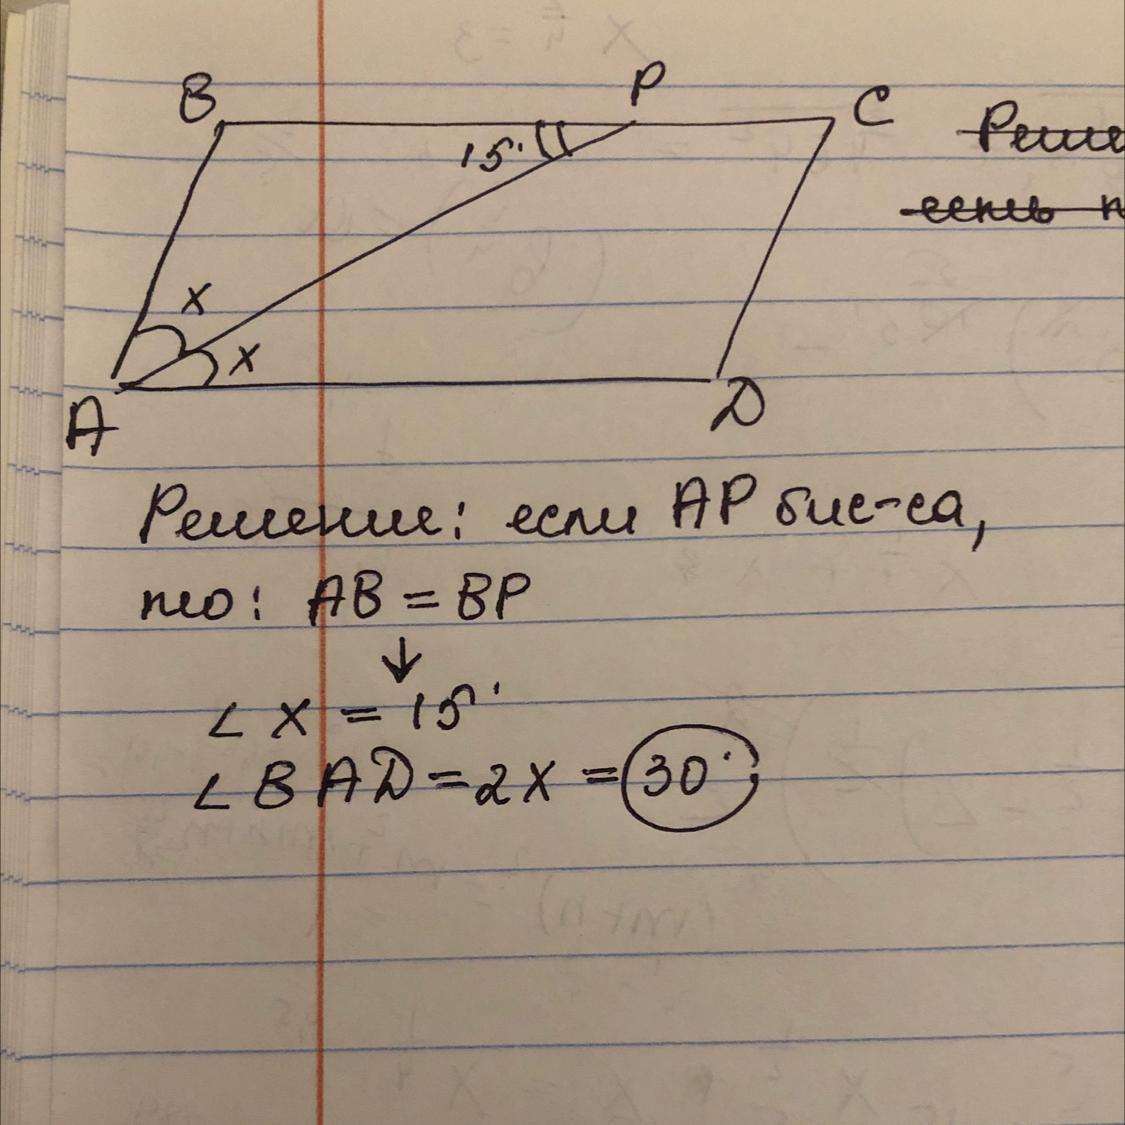 B
P
C
15°
x
x
A
D
Реше
есть п
Решение: если AP бис-са,
то: AB = BP
↓
∠ X = 15°
∠ BAD = 2X = 30°